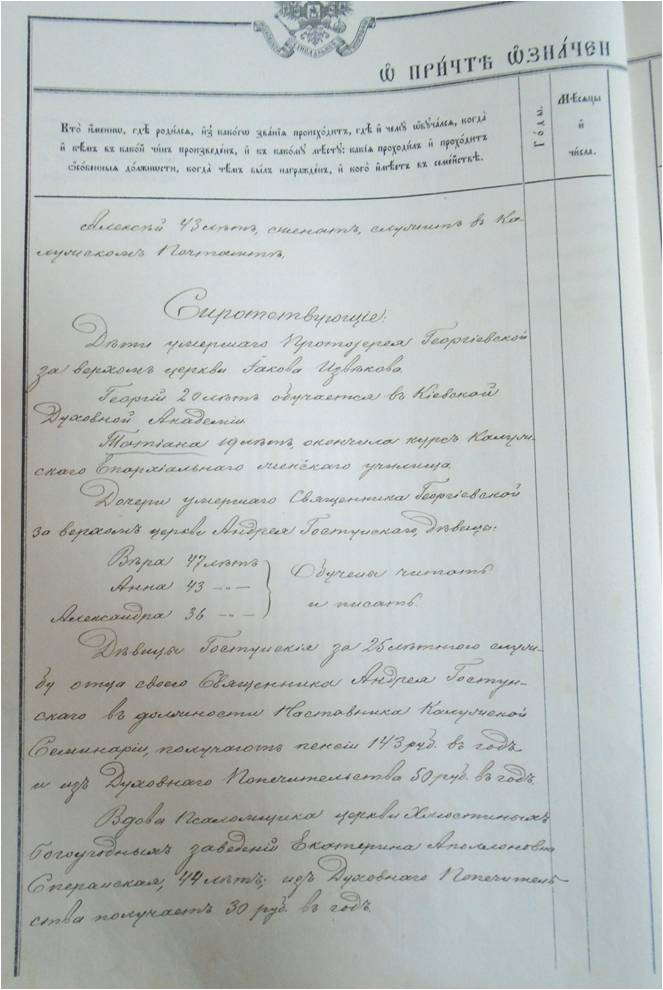 Ѡ ПРИ́ЧТѢ Ѡ҆ЗНА́ЧЕН
Кто̀ и҆́менно, гдѣ̀ роди́лсѧ, и҆з̾ како́гѡ зва́нїѧ происхо́дитъ, гдѣ̀ и҆ чемꙋ̀ ѡ҆бꙋча́лсѧ, когда̀
и҆ кѣ́мъ въ како́й чи́нъ произведе́нъ, и҆ къ како́мꙋ мѣ́стꙋ: какі̑ѧ проходи́лъ и҆ прохо́дитъ
ѻ҆со́бенныѧ до́лжности, когда̀ чѣ́мъ бы́лъ награжде́нъ, и҆ кого̀ и҆мѣ́етъ въ семе́йствѣ.
Го́ды.
Мѣ́сѧцы
и҆
чи́сла.
Алексѣй 43 лѣтъ, женатъ, служитъ въ Ка-
лужскомъ Почтамтѣ.
Сиротствующіе:
Дѣти умершаго Протоіерея Георгіевской
за верхомъ церкви Іакова Извѣкова
Георгій 20 лѣтъ обучается въ Кіевской
Духовной Академіи
Татіана 19 лѣтъ, окончила курсъ Калуж-
скаго Епархіальнаго женскаго училища
Дочери умершаго Священника Георгіевской
за верхомъ церкви Андрея Гостунскаго, дѣвицы:
Вѣра 47 лѣтъ
Анна 43 -"-
Александра 36 -"-
Обучены читать
и писать.
Дѣвицы Гостунскія за 25 лѣтнюю служ-
бу отца своего Священника Андрея Гостун-
скаго въ должности Наставника Калужской
Семинаріи, получаютъ пенсіи 143 руб. въ годъ
и изъ Духовнаго Попечительства 50 руб. въ годъ.
Вдова Псаломщика церкви Хлюстиныхъ
богоугодныхъ заведеній Екатерина Аполлоновна
Сперанская, 44 лѣтъ; изъ Духовнаго Попечитель-
ства получаетъ 30 руб. въ годъ.